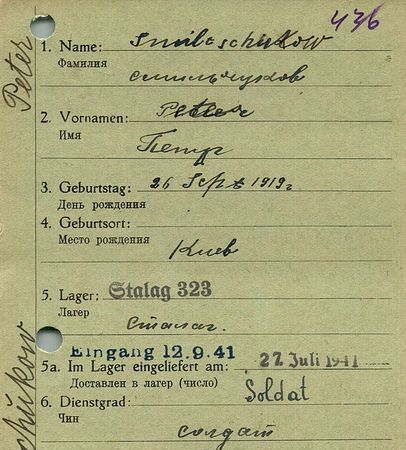 436
1. Name: Smileschukow
Фамилия
смильчуков
2. Vornamen: Peter
Имя
Петр
3. Geburtstag: 26 Sept 1919г
День рождения
4. Geburtsort:
Место рождения
Киев
5. Lager: Stalag 323
Лагер
Сталаг.
Eingang 12.9.41
5a. Im Lager eingeliefert am: 27. Juli 1941
Доставлен в лагер (число)
6. Dienstgrad: Soldat
Чин
солдат
Peter